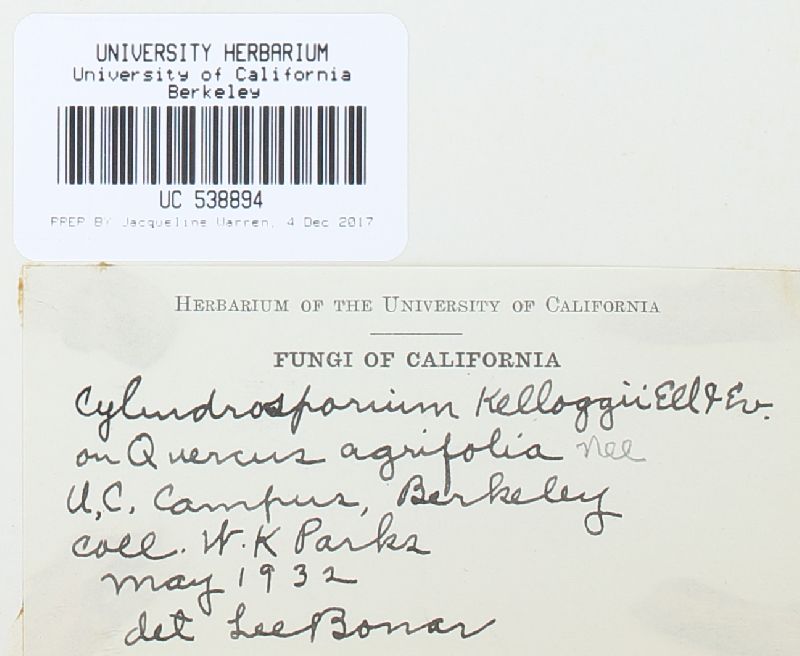 UNIVERSITY HERBARIUM
University of California
Berkeley
UC 538894
PREP BY Jacqueline Warren, 4 Dec 2017
HERBARIUM OF THE UNIVERSITY OF CALIFORNIA
FUNGI OF CALIFORNIA
Cylindrosporium Kelloggii Ell & Ev.
on Quercus agrifolia Nee
U.C. Campus, Berkeley
coll. W.K Parks
May 1932
det Lee Bonar